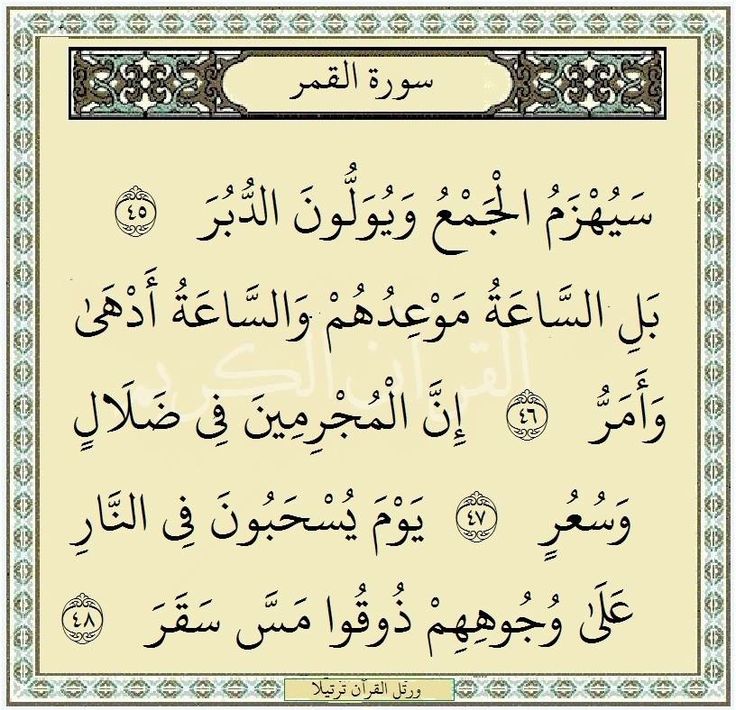 سورة القمر
سَيُهْزَمُ الْجَمْعُ وَيُوَلُّونَ الدُّبُرَ ٤٥
بَلِ السَّاعَةُ مَوْعِدُهُمْ وَالسَّاعَةُ أَدْهَىٰ
وَأَمَرُّ ٤٦ إِنَّ الْمُجْرِمِينَ فِي ضَلَالٍ
وَسُعُرٍ ٤٧ يَوْمَ يُسْحَبُونَ فِي النَّارِ
عَلَىٰ وُجُوهِهِمْ ذُوقُوا مَسَّ سَقَرَ ٤٨
القرآن الكريم
ورتل القرآن ترتيلا